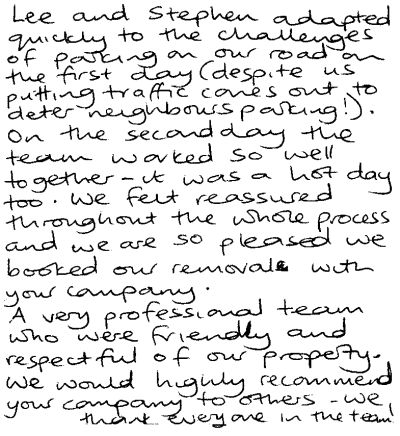 Lee and Stephen adapted
quickly to the challenges
of parking on our road on
the first day (despite us
putting traffic cones out to
deter neighbours parking!).
On the second day the
team worked so well
together - it was a hot day
too. We felt reassured
throughout the whole process
and we are so pleased we
booked our removals with
your company.
A very professional team
who were friendly and
respectful of our property.
We would highly recommend
your company to others - we
thank everyone in the team!